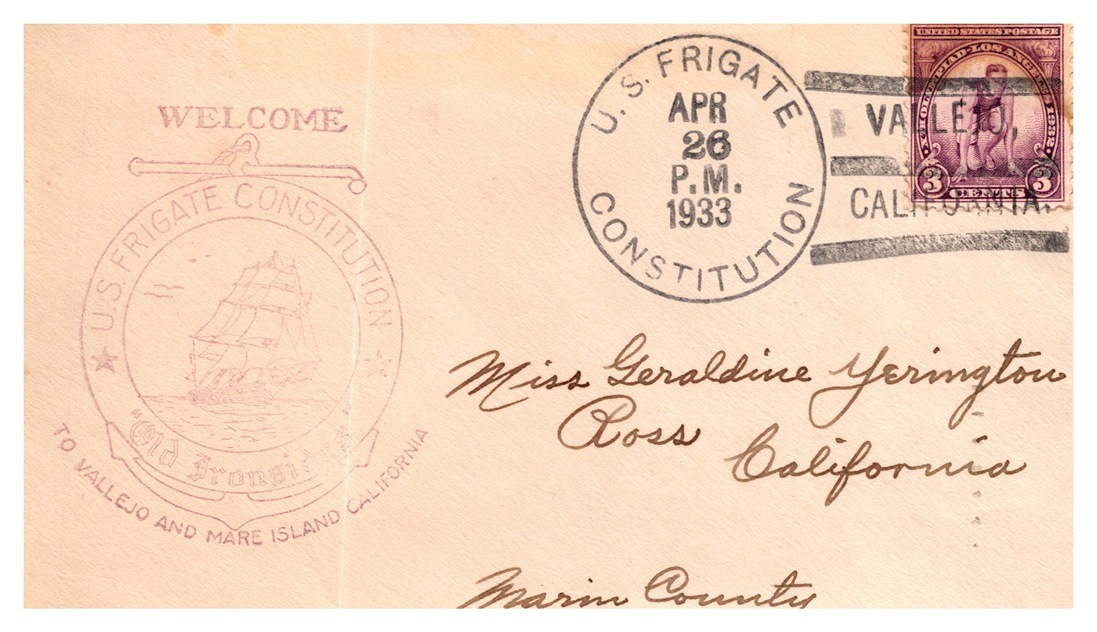 WELCOME
U.S. FRIGATE CONSTITUTION
"Old Ironsides"
TO VALLEJO AND MARE ISLAND CALIFORNIA
U.S. FRIGATE
APR
26
P.M.
1933
CONSTITUTION
VALLEJO,
CALIFORNIA.
UNITED STATES POSTAGE
XTH OLYMPIAD-LOS ANGELES 1932
3 CENTS 3
Miss Geraldine Yerington
Ross
California
Marin County